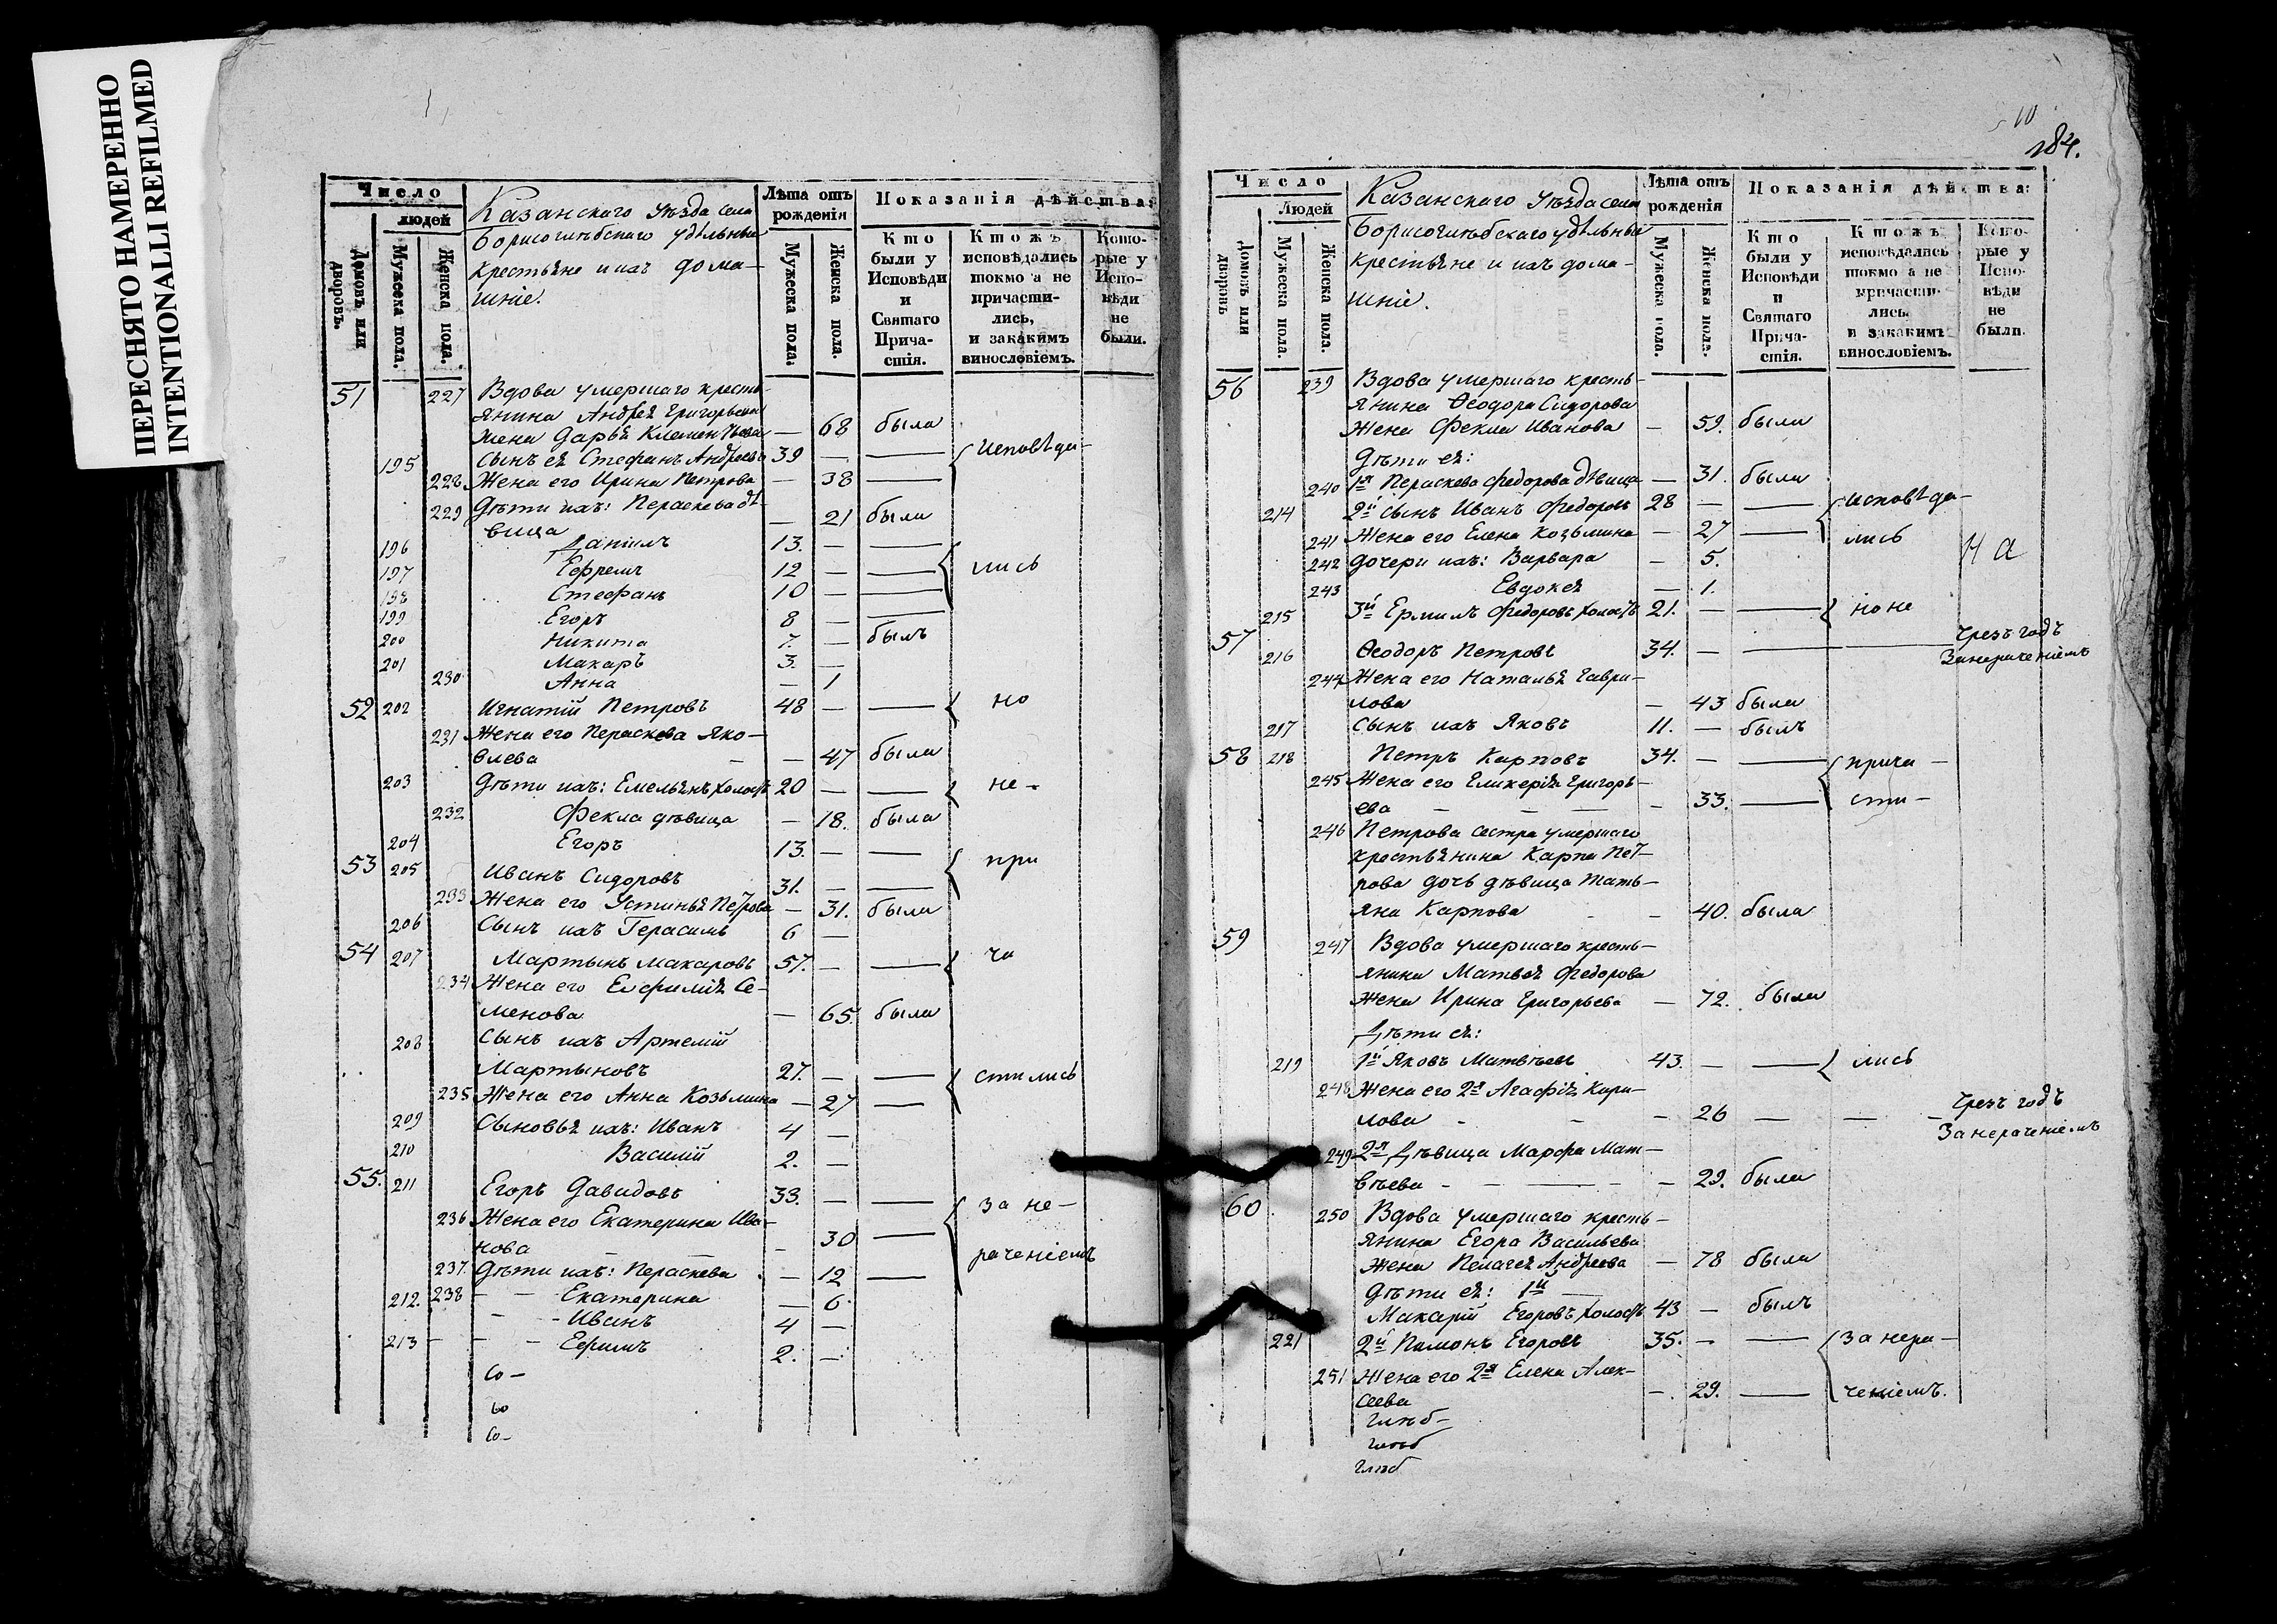 ПЕРЕСНЯТО НАМЕРЕННО
INTENTIONALLI REFILMED
Число
людей
Домовъ или дворовъ.
Мужеска пола.
Женска пола.
Казанскаго Уѣзда села
Борисоглѣбскаго удѣльныя
крестьяне и ихъ дома-
шніе.
Лѣта отъ рожденія
Мужеска пола.
Женска пола.
Показанія дѣйства:
Кто были у Исповѣди и Святаго Прича-стія.
Кто жъ исповѣдались токмо а не причасти-лись, и закакимъ винословіемъ.
Кото-рые у Испо-вѣди не были.
51 227 Вдова умершаго кресть-
янина Андрея Григорьева
жена Дарья Клементьева — 68 была
195 Сынъ ея Стефанъ Андреевъ 39 — — Исповѣда-
228 Жена его Ирина Петрова — 38 —
229 Дѣти ихъ: Пераскева дѣ-
вица — 21 была
196 Даніилъ 13. — —
197 Ефремъ 12 — — лись
198 Стефанъ 10 — —
199 Егоръ 8 — —
200 Никита 7. — былъ
201 Макаръ 3. —
230 Анна — 1
52 202 Игнатій Петровъ 48 — — но
231 Жена его Пераскева Яко-
влева — — 47 была
203 Дѣти ихъ: Емельянъ холостъ 20 — — не-
232 Фекла дѣвица — 18. была
204 Егоръ 13. — —
53 205 Иванъ Сидоровъ 31. — — при
233 Жена его Устинья Петрова — 31. была
206 Сынъ ихъ Герасимъ 6 —
54 207 Мартынъ Макаровъ 57. — — ча
234 Жена его Евфимія Се-
менова — 65. была
208 Сынъ ихъ Артемій
Мартыновъ 27. — — стились
235 Жена его Анна Козьмина — 27 —
209 Сыновья ихъ: Иванъ 4 —
210 Василій 2. —
55. 211 Егоръ Давидовъ 33. — — за не-
236 Жена его Екатерина Ива-
нова — — — 30 — раченіемъ
237. Дѣти ихъ: Пераскева — 12 —
212. 238 — — Екатерина — 6.
— — Иванъ 4 —
213 — — — Ефимъ 2. —
Со-
со
Со-
10
184.
Число
Людей
Домовъ или дворовъ
Мужеска пола.
Женска пола.
Казанскаго Уѣзда села
Борисоглѣбскаго удѣльныя
крестьяне и ихъ дома-
шніе.
Лѣта отъ рожденія
Мужеска пола.
Женска пола.
Показанія дѣйства:
Кто были у Исповѣди и Святаго Прича-стія.
Кто жъ исповѣдались токмо а не причасти-лись. и закакимъ винословіемъ.
Кото-рые у Испо-вѣди не были.
56 239 Вдова умершаго кресть-
янина Ѳеодора Сидорова
жена Фекла Иванова — 59. была
Дѣти ея:
240 1я Пераскева Федорова дѣвица — 31. была
214 2й сынъ Иванъ Федоровъ 28 — — Исповѣда-
241 Жена его Елена Козьмина — 27 — лись
242 дочери ихъ: Варвара — 5. На
243 Евдокея — 1.
215 3й Ермилъ Федоровъ холостъ 21. — — но не
57 216 Ѳеодоръ Петровъ 34. — — — Чрезъ годъ
Занераченіемъ
244 Жена его Наталья Гаври-
лова — 43 была
217 Сынъ ихъ Яковъ 11. — былъ
58 218 Петръ Карповъ 34. — — прича-
245 Жена его Гликерія Григорь-
ева — — — 33. — сти-
246 Петрова сестра умершаго
крестьянина Карпа Пет-
рова дочь дѣвица Тать-
яна Карпова — 40. была
59 247 Вдова умершаго кресть-
янина Матвея Федорова
жена Ирина Григорьева — 72. была
Дѣти ея:
219 1й Яковъ Матвѣевъ 43. — — лись
248 Жена его 2я Агафія Кири-
лова — — — 26 — — — Чрезъ годъ
Занераченіемъ
249 2я Дѣвица Марфа Мат-
вѣева — — — 29. была
60 250 Вдова умершаго кресть-
янина Егора Васильева
жена Пелагея Андреева — 78 была
Дѣти ея: 1й —
Макарій Егоровъ холостъ 43 — былъ
221 2й Памонъ Егоровъ 35. — — за нера-
251 Жена его 2я Елена Алек-
сеева — 29. — ченіемъ.
глѣб-
глѣб
глѣб